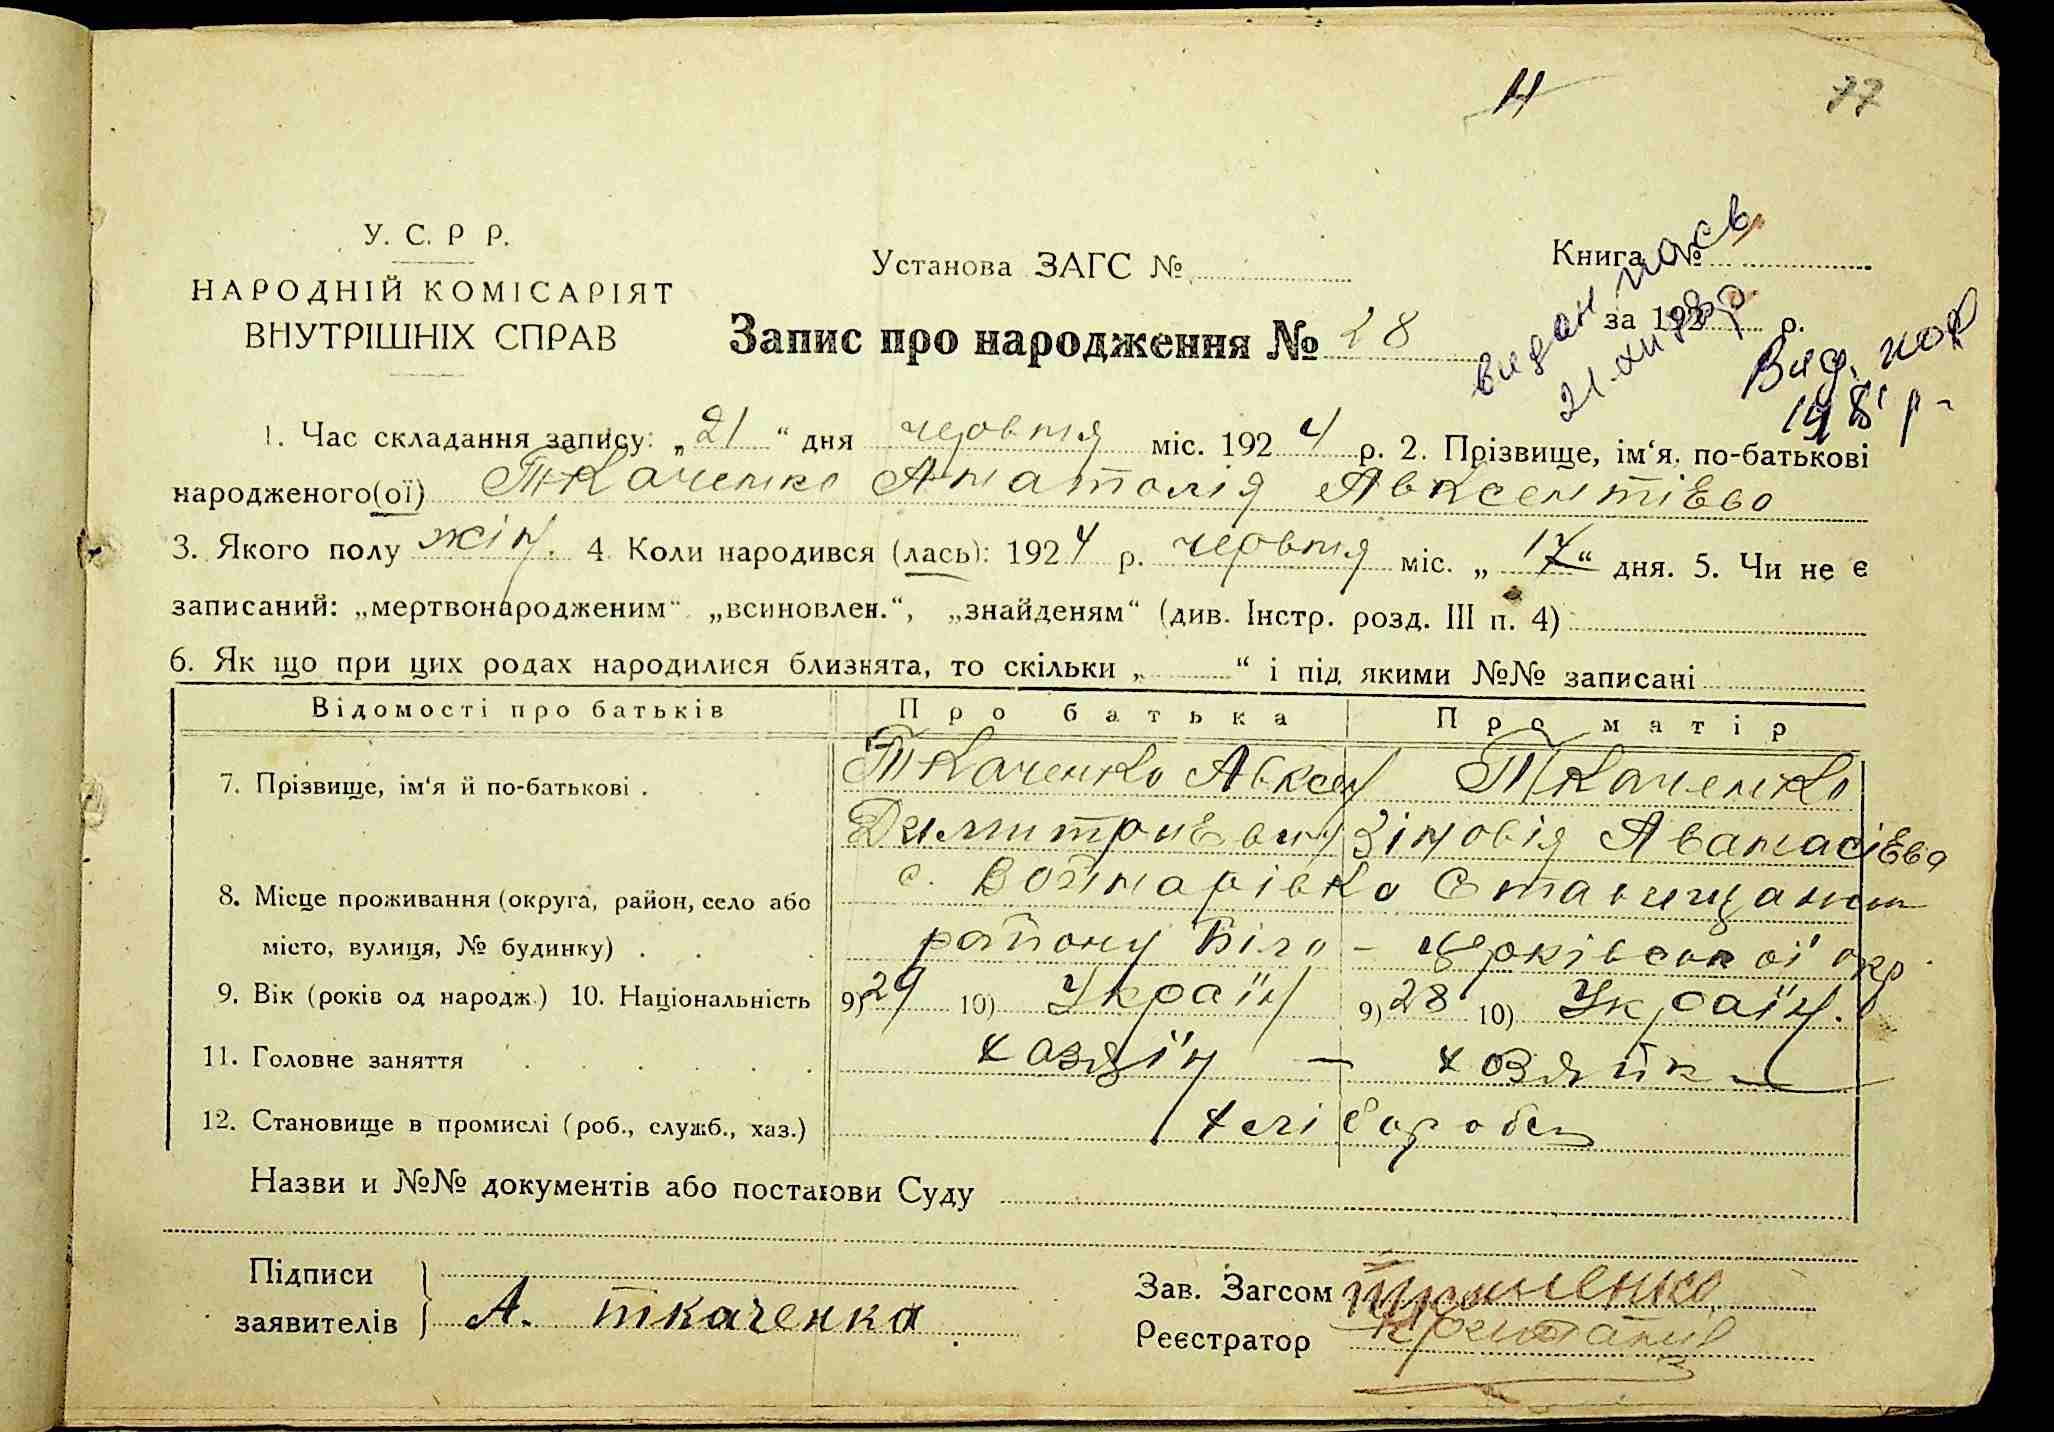 77
У. С. Р Р.
НАРОДНІЙ КОМІСАРІЯТ
ВНУТРІШНІХ СПРАВ
Установа ЗАГС №
Книга №
за 192 р.
Запис про народження № 28
видан пасп
Вид. 1981 р.
1. Час складання запису: „21“ дня червня міс. 1924 р. 2. Прізвище, ім‘я, по-батькові
народженого(ої) Ткаченко Анатолія Авксентієва
3. Якого полу жін. 4 Коли народився (лась): 1924 р. червня міс. „17“ дня. 5. Чи не є
записаний: „мертвонародженим“ „всиновлен.“, „знайденям“ (див. Інстр. розд. III п. 4)
6. Як що при цих родах народилися близнята, то скільки „ “ і під якими №№ записані
Відомості про батьків Про батька Про матір
7. Прізвище, ім‘я й по-батькові . Ткаченко Авксен Ткаченко
Димитриєвич Зіновія Аванасієва
8. Місце проживання (округа, район, село або с. Войнарівка Ставищанськ
місто, вулиця, № будинку) . району Біло-Церківської окр.
9. Вік (років од народж.) 10. Національність 9) 29 10) Україн 9) 28 10) Україн.
11. Головне заняття хазяїн — хозяйка
12. Становище в промислі (роб., служб., хаз.) хлібороби
Назви и №№ документів або постанови Суду
Підписи
заявителів А. ткаченко
Зав. Загсом
Реєстратор